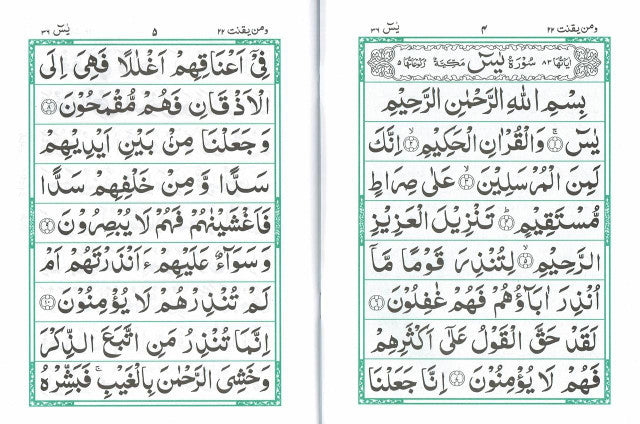 ومن يقنت ٢٢ ٤ يٰسٓ ٣٦
اٰيَاتُهَا ٨٣ سُوْرَةُ يٰسٓ مَكِّيَّةٌ رُكُوْعَاتُهَا ٥
بِسْمِ اللّٰهِ الرَّحْمٰنِ الرَّحِيْمِ
يٰسٓ ۚ ﴿١﴾ وَالْقُرْاٰنِ الْحَكِيْمِ ۙ ﴿٢﴾ اِنَّكَ
لَمِنَ الْمُرْسَلِيْنَ ۙ ﴿٣﴾ عَلٰى صِرَاطٍ
مُّسْتَقِيْمٍ ؕ ﴿٤﴾ تَنْزِيْلَ الْعَزِيْزِ
الرَّحِيْمِ ۙ ﴿٥﴾ لِتُنْذِرَ قَوْمًا مَّاۤ
اُنْذِرَ اٰبَآؤُهُمْ فَهُمْ غٰفِلُوْنَ ﴿٦﴾
لَقَدْ حَقَّ الْقَوْلُ عَلٰۤى اَكْثَرِهِمْ
فَهُمْ لَا يُؤْمِنُوْنَ ﴿٧﴾ اِنَّا جَعَلْنَا
ومن يقنت ٢٢ ٥ يٰسٓ ٣٦
فِيْۤ اَعْنَاقِهِمْ اَغْلٰلًا فَهِيَ اِلَى
الْاَذْقَانِ فَهُمْ مُّقْمَحُوْنَ ﴿٨﴾
وَجَعَلْنَا مِنْ بَيْنِ اَيْدِيْهِمْ
سَدًّا وَّ مِنْ خَلْفِهِمْ سَدًّا
فَاَغْشَيْنٰهُمْ فَهُمْ لَا يُبْصِرُوْنَ ﴿٩﴾
وَسَوَآءٌ عَلَيْهِمْ ءَاَنْذَرْتَهُمْ اَمْ
لَمْ تُنْذِرْهُمْ لَا يُؤْمِنُوْنَ ﴿١٠﴾
اِنَّمَا تُنْذِرُ مَنِ اتَّبَعَ الذِّكْرَ
وَخَشِيَ الرَّحْمٰنَ بِالْغَيْبِ ۚ فَبَشِّرْهُ